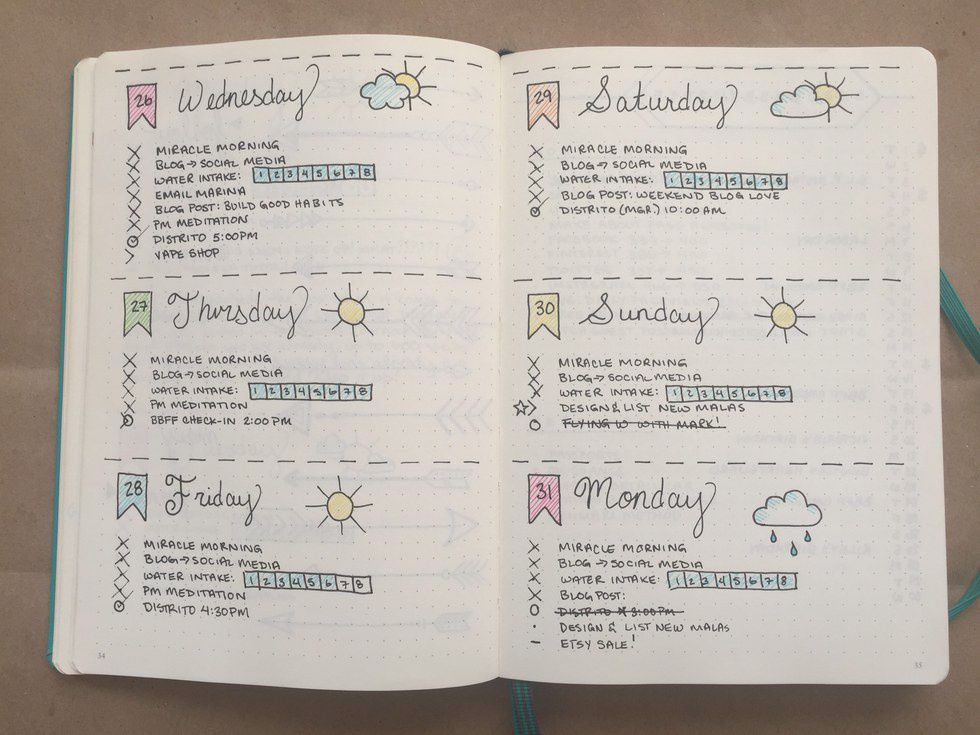 26 Wednesday
MIRACLE MORNING
BLOG → SOCIAL MEDIA
WATER INTAKE: 1 2 3 4 5 6 7 8
EMAIL MARINA
BLOG POST: BUILD GOOD HABITS
PM MEDITATION
DISTRITO 5:00PM
VAPE SHOP
27 Thursday
MIRACLE MORNING
BLOG → SOCIAL MEDIA
WATER INTAKE: 1 2 3 4 5 6 7 8
PM MEDITATION
BBFF CHECK-IN 2:00 PM
28 Friday
MIRACLE MORNING
BLOG → SOCIAL MEDIA
WATER INTAKE: 1 2 3 4 5 6 7 8
PM MEDITATION
DISTRITO 4:30PM
34
29 Saturday
MIRACLE MORNING
BLOG → SOCIAL MEDIA
WATER INTAKE: 1 2 3 4 5 6 7 8
BLOG POST: WEEKEND BLOG LOVE
DISTRITO (MGR.) 10:00 AM
30 Sunday
MIRACLE MORNING
BLOG → SOCIAL MEDIA
WATER INTAKE: 1 2 3 4 5 6 7 8
DESIGN & LIST NEW MALAS
FLYING W WITH MARK!
31 Monday
MIRACLE MORNING
BLOG → SOCIAL MEDIA
WATER INTAKE: 1 2 3 4 5 6 7 8
BLOG POST:
DISTRITO 3:00PM
DESIGN & LIST NEW MALAS
ETSY SALE!
35